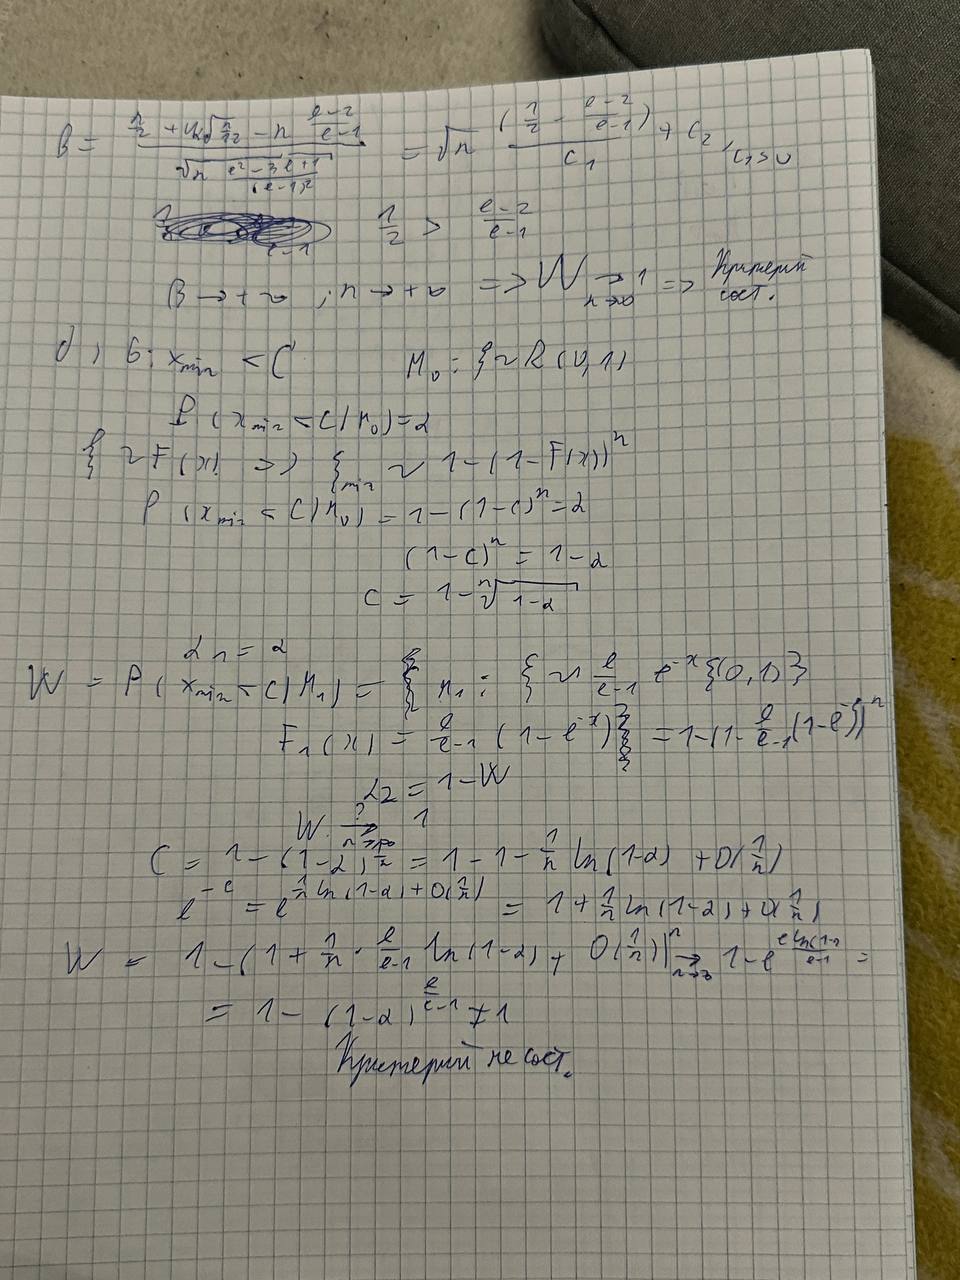 B = (n/2 + u_α√(n/12) − n (e−2)/(e−1)) / (√n √(e²−3e+1)/(e−1)²) = √n (1/2 − (e−2)/(e−1))/c₁ + c₂, c₁>0
1/2 > (e−2)/(e−1)
B → +∞, n → +∞ => W →_{n→∞} 1 => Критерий сост.
б: x_min < C H₀: ξ ~ R(0,1)
P(x_min < C | H₀) = α
ξ ~ F(x) => ξ_min ~ 1−(1−F(x))ⁿ
P(x_min < C | H₀) = 1−(1−c)ⁿ = α
(1−c)ⁿ = 1−α
c = 1 − ⁿ√(1−α)
α₁ = α
W = P(x_min < C | H₁) = { H₁: ξ ~ e/(e−1) e^{−x} {(0,1)}
F₁(x) = e/(e−1) (1−e^{−x}) } = 1−(1− e/(e−1) (1−e^{−c}))ⁿ
α₂ = 1−W
W →^{?}_{n→∞} 1
C = 1−(1−α)^{1/n} = 1−1−1/n ln(1−α) + O(1/n)
e^{−c} = e^{1/n ln(1−α)+O(1/n)} = 1+1/n ln(1−α)+O(1/n)
W = 1−(1+1/n · e/(e−1) ln(1−α) + O(1/n))ⁿ →_{n→∞} 1−e^{e ln(1−α)/(e−1)} =
= 1−(1−α)^{e/(e−1)} ≠ 1
Критерий не сост.